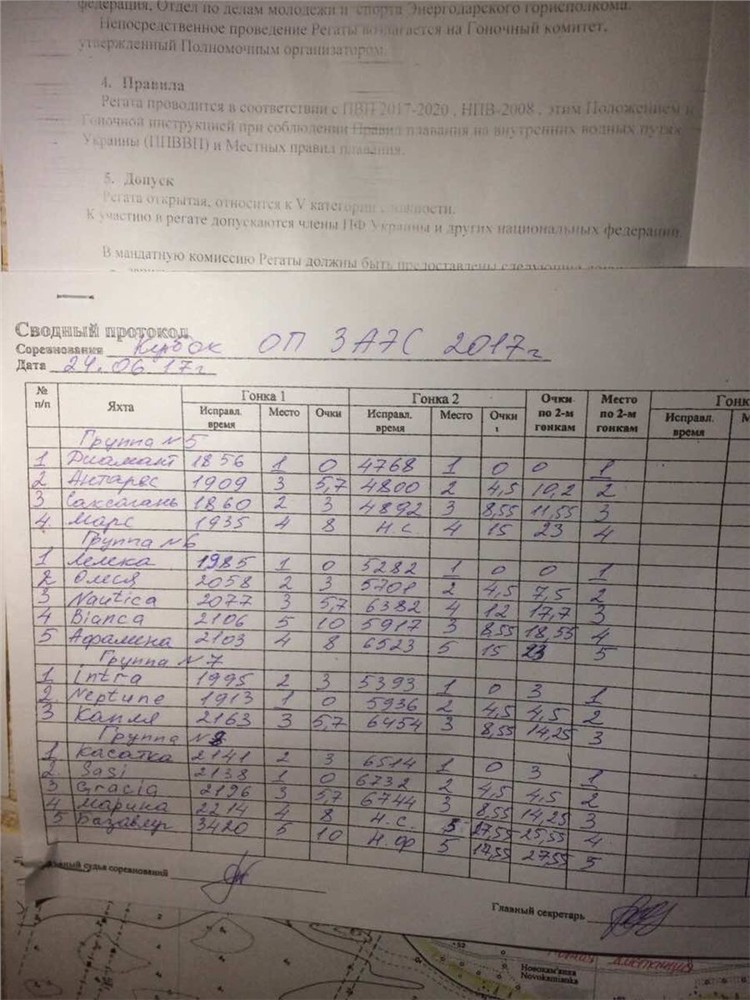 федерация, Отдел по делам молодежи и спорта Энергодарского горисполкома.
Непосредственное проведение Регаты возлагается на Гоночный комитет,
утвержденный Полномочным организатором.
4. Правила
Регата проводится в соответствии с ППП 2017-2020 , НПВ-2008 , этим Положением и
Гоночной инструкцией при соблюдении Правил плавания на внутренних водных путях
Украины (ППВВП) и Местных правил плавания.
5. Допуск
Регата открытая, относится к V категории сложности.
К участию в регате допускаются члены ПФ Украины и других национальных федераций.
В мандатную комиссию Регаты должны быть предоставлены следующие
Сводный протокол
Соревнования Кубок ОП ЗАЭС 2017г
Дата 24.06.17г
№ п/п Яхта Гонка 1 Гонка 2 Очки по 2-м гонкам Место по 2-м гонкам Гонк
Исправл. время Место Очки Исправл. время Место Очки Исправл. время М
Группа №5
1 Диамант 1856 1 0 4768 1 0 0 1
2 Антарес 1909 3 5,7 4800 2 4,5 10,2 2
3 Саксагань 1860 2 3 4892 3 8,55 11,55 3
4. Марс 1935 4 8 н.с. 4 15 23 4
Группа №6
1 Лелека 1985 1 0 5282 1 0 0 1
2 Олеся 2058 2 3 5701 2 4,5 7,5 2
3 Nautica 2077 3 5,7 6382 4 12 17,7 3
4 Bianca 2106 5 10 5917 3 8,55 18,55 4
5 Афалина 2103 4 8 6523 5 15 23 5
Группа №7
1 intra 1995 2 3 5393 1 0 3 1
2. Neptune 1913 1 0 5936 2 4,5 4,5 2
3 Капля 2163 3 5,7 6454 3 8,55 14,25 3
Группа №8
1 Касатка 2141 2 3 6514 1 0 3 1
2. Sasi 2138 1 0 6732 2 4,5 4,5 2
3 Gracia 2196 3 5,7 6744 3 8,55 14,25 3
4 Марина 2214 4 8 н.с. 5 17,55 25,55 4
5 Базавлук 3420 5 10 н.ф 5 17,55 27,55 5
судья соревнований
Главный секретарь
Новокам'янка
Novokamianka